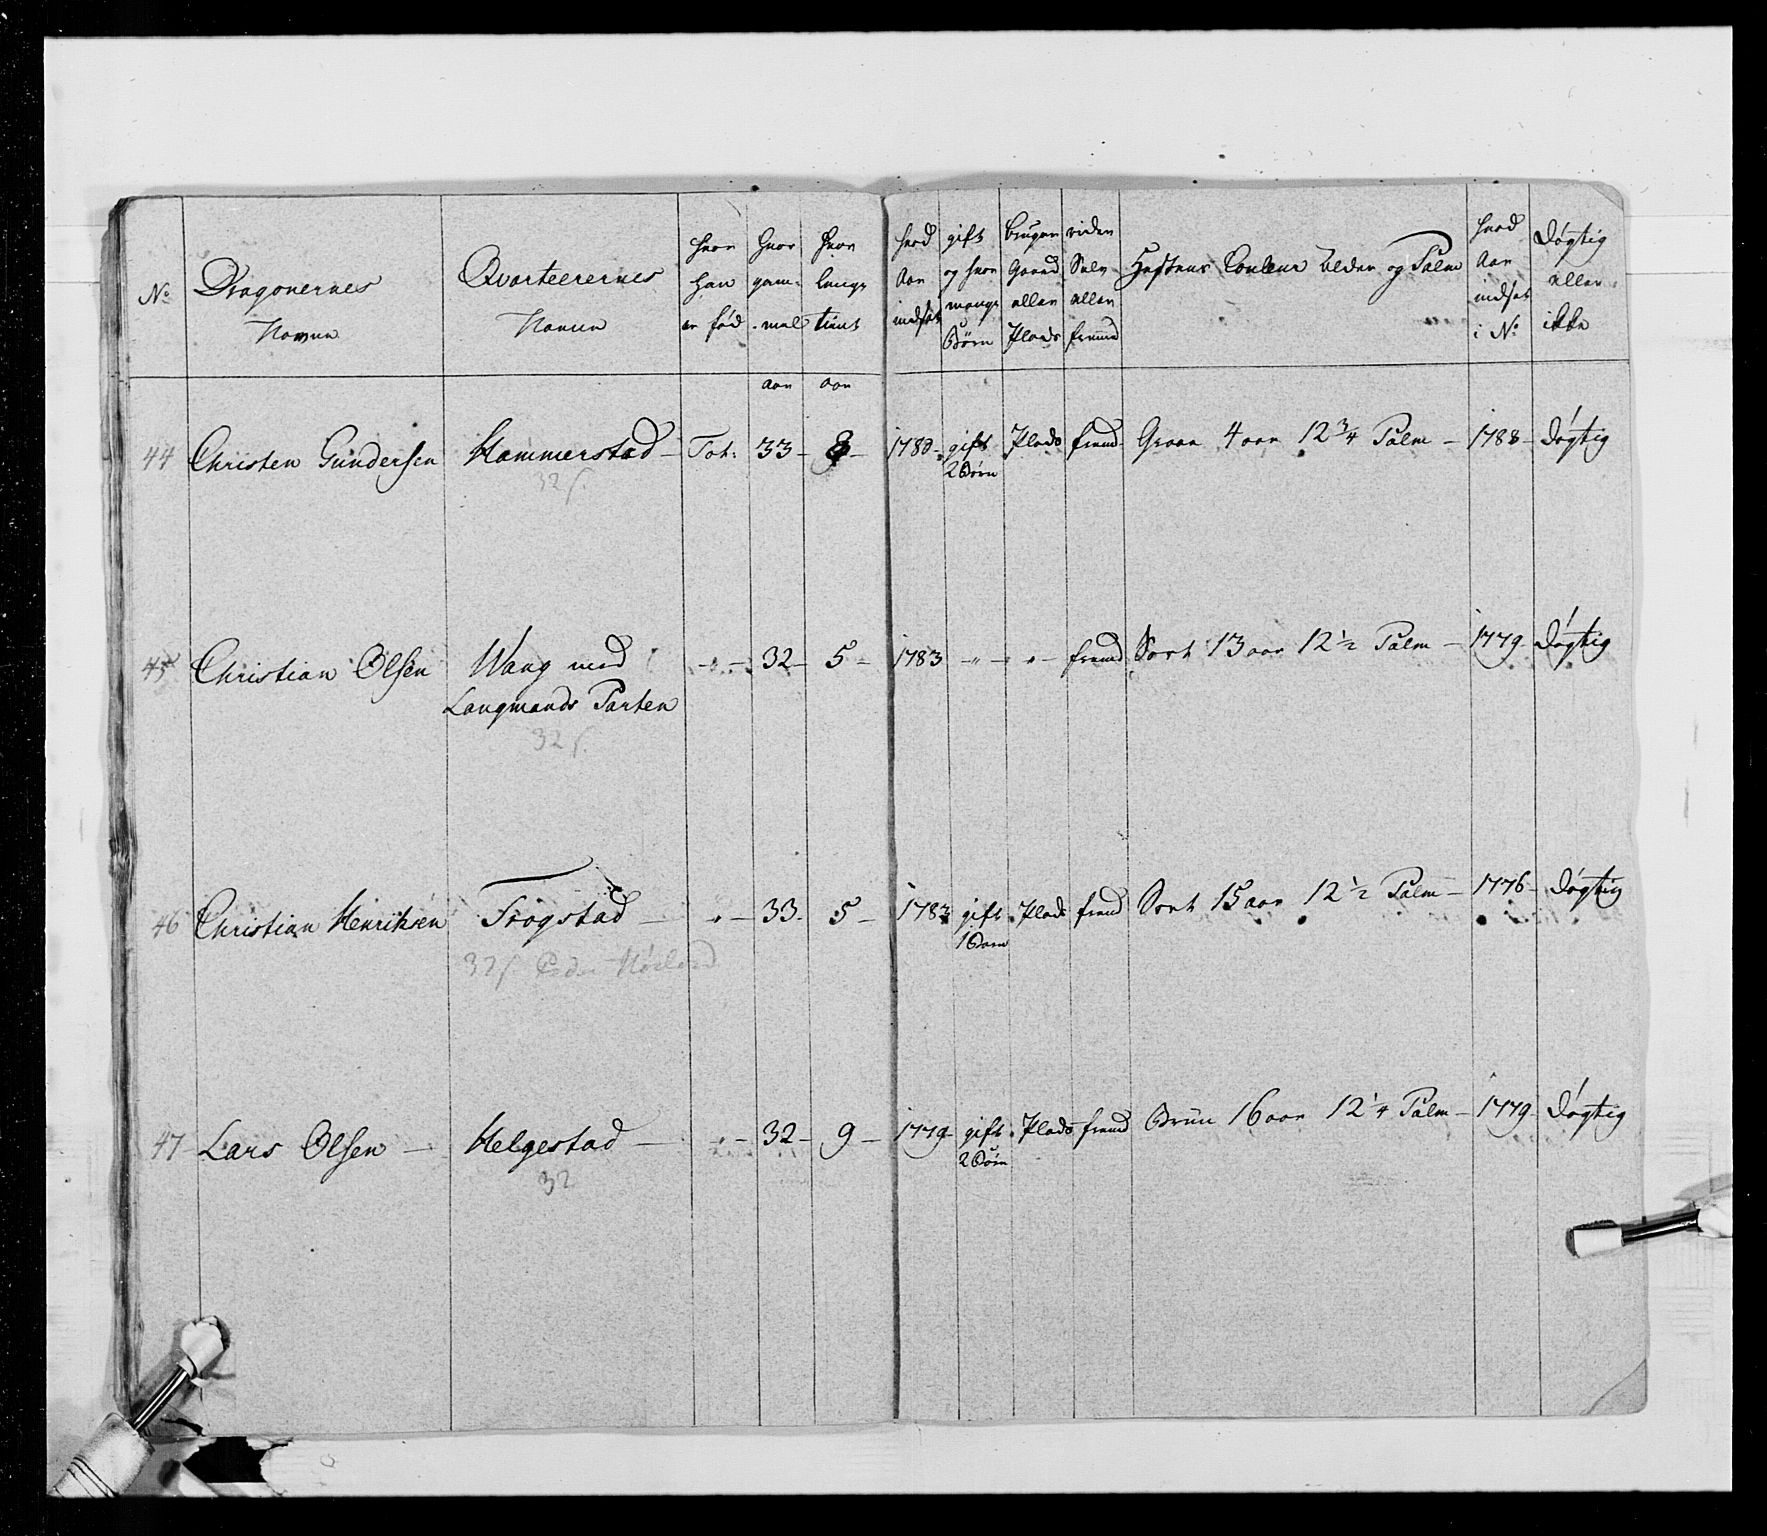 No
Dragonernes
Navne
Qvarteerernes
Navne
hvor
han
er fød
hvor
gam-
mel
hvor
længe
tient
hvad
Aar
indsat
gift
og hvor
mange
Børn
bruger
Gaard
eller
Plads
rider
Selv
eller
fremd
Hestens Couleur Alder og Palm
hvad
Aar
indsat
i No
døgtig
eller
ikke
aar aar
44 Christen Gundersen Hammerstad – Tot: 33 – 8 – 1780 – gift Plads fremd Graae 4 aar 12 3/4 Palm – 1788 – døgtig
2 Børn
32
45 Christian Olsen Wang med – " – 32 – 5 – 1783 – " – " – fremd Sort 13 aar 12 1/2 Palm – 1779 – døgtig
Langmands Parten
32
46 Christian Henriksen Frogstad – " – 33 – 5 – 1783 gift Plads fremd Sort 15 aar 12 1/2 Palm – 1776 – døgtig
1 Barn
32 Peder
47 Lars Olsen – Helgestad – " – 32 – 9 – 1779 – gift Plads fremd Brun 16 aar 12 1/4 Palm – 1779 – døgtig
2 Børn
32